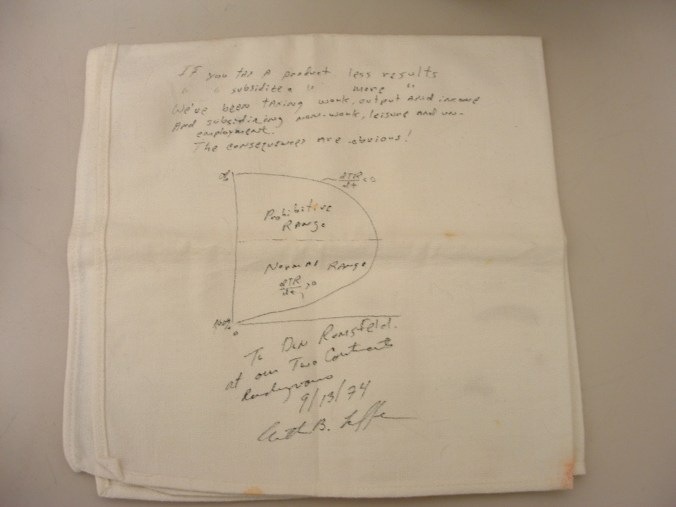 If you tax a product less results
" " subsidize a " more "
We've been taxing work, output and income
and subsidizing non-work, leisure and un-
employment.
The consequences are obvious!
dTR
Prohibitive
Range
Normal Range
dTR
>0
100%
0
To Don Rumsfeld.
at our Two Continents
Rendezvous
9/13/74
Arthur B. Laffer